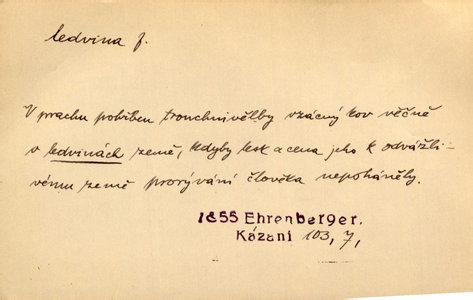 ledvina f.
V prachu pohřben trouchnivělby vzácný kov věčně
v ledvinách země, kdyby lesk a cena jeho k odvážli-
vému země prorývání člověka nepoháněly.
1855 Ehrenberger.
Kázaní 103, 7,